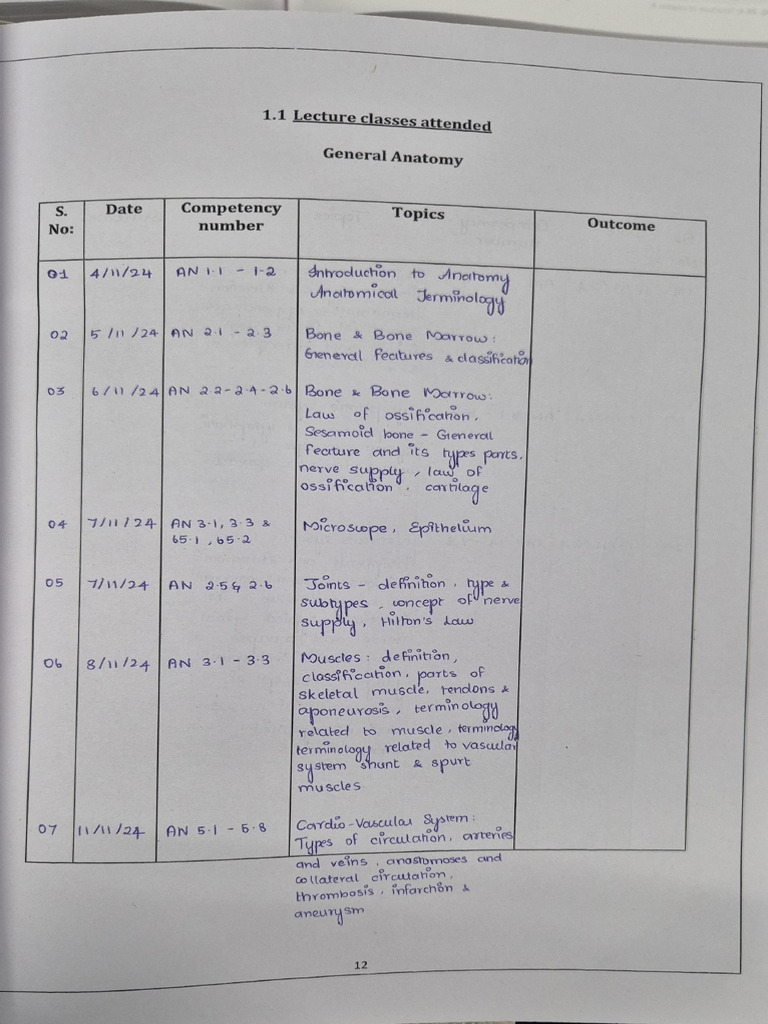 1.1 Lecture classes attended
General Anatomy
S. No: Date Competency number Topics Outcome
01 4/11/24 AN 1.1 - 1.2 Introduction to Anatomy
Anatomical Terminology
02 5/11/24 AN 2.1 - 2.3 Bone & Bone Marrow:
General features & classification
03 6/11/24 AN 2.2-2.4-2.6 Bone & Bone Marrow.
Law of ossification.
Sesamoid bone - General
feature and its types parts.
nerve supply, law of
ossification. cartilage
04 7/11/24 AN 3.1, 3.3 & Microscope, Epithelium
65.1, 65.2
05 7/11/24 AN 2.5 & 2.6 Joints - definition, type &
subtypes, concept of nerve
supply, Hilton's Law
06 8/11/24 AN 3.1 - 3.3 Muscles: definition,
classification, parts of
skeletal muscle, tendons &
aponeurosis, terminology
related to muscle, terminology
terminology related to vascular
system shunt & spurt
muscles
07 11/11/24 AN 5.1 - 5.8 Cardio-Vascular System:
Types of circulation, arteries
and veins, anastomoses and
collateral circulation,
thrombosis, infarction &
aneurysm
12